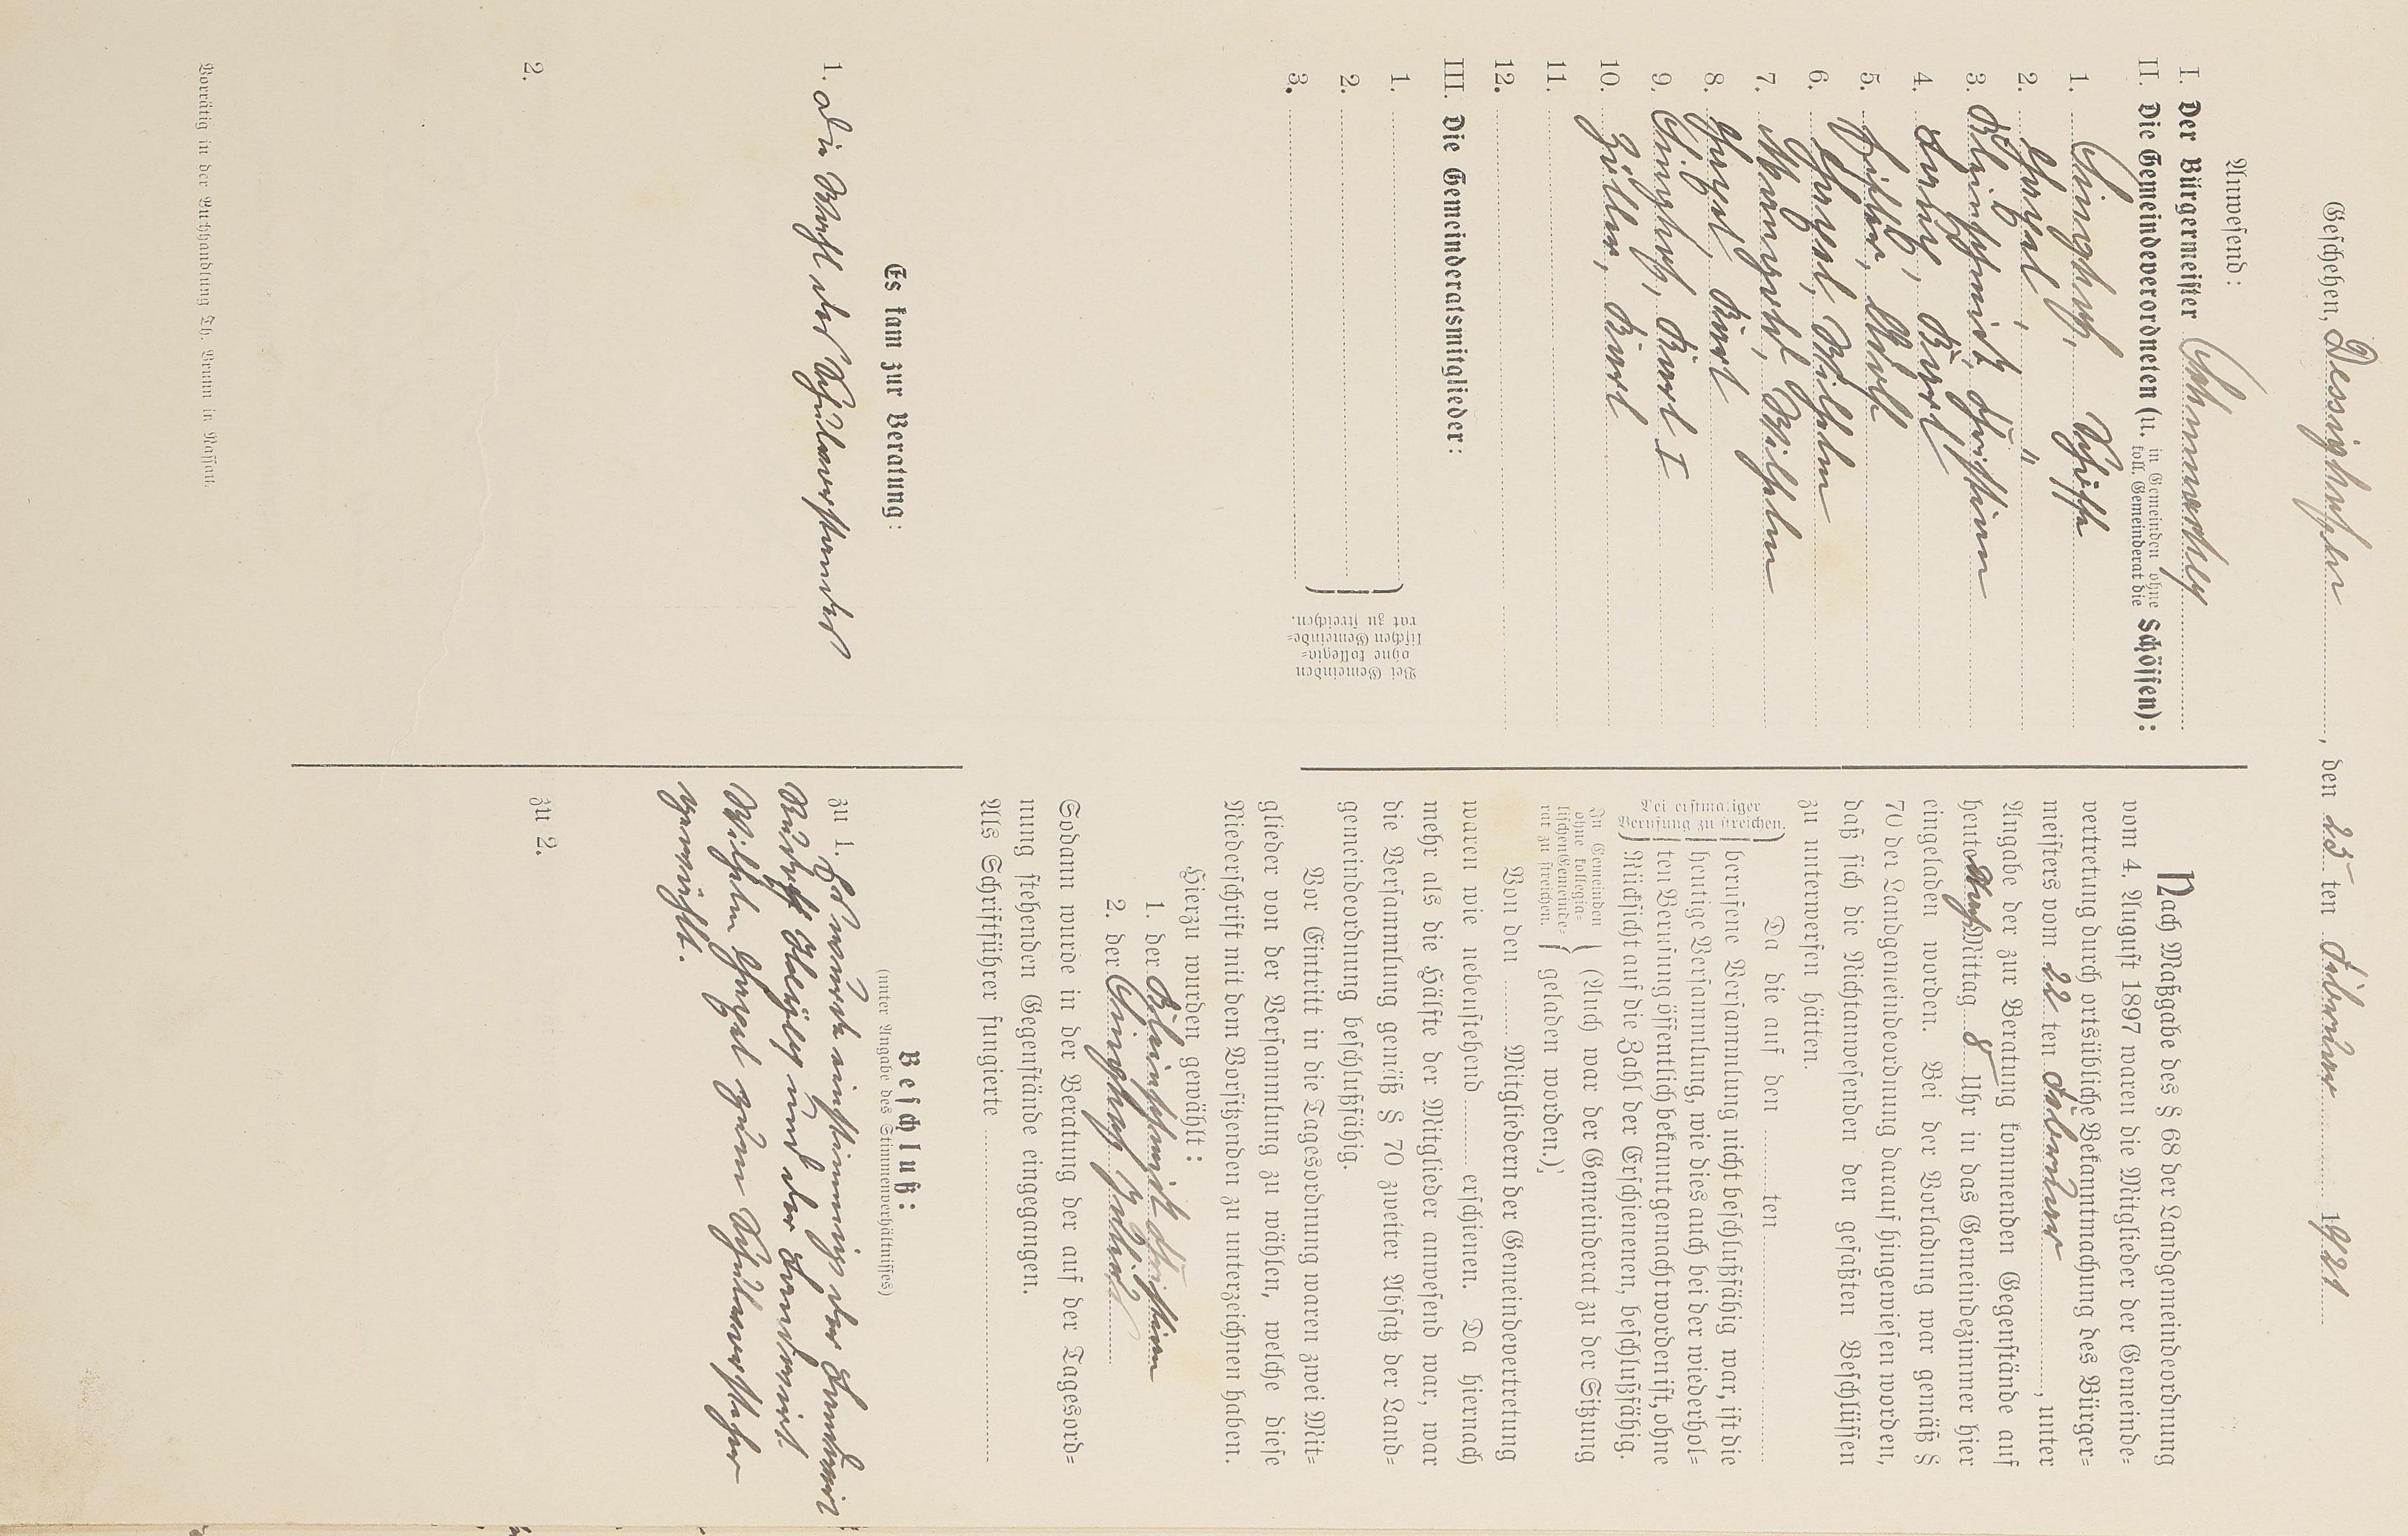 Geschehen, Dessighofen, den 25ten Februar 1921
Anwesend:
I. Der Bürgermeister
II. Die Gemeindeverordneten (u. in Gemeinden ohne koll. Gemeinderat die Schöffen):
1. Singhof, Schöffe
2. "
3. Kleinschmidt, Christian
4. Karl
5. Adolf
6. Wilhelm
7. Wilhelm
8. Karl
9. Singhof, Karl I
10. Zöller, Karl
11.
12.
III. Die Gemeinderatsmitglieder:
1.
2.
3.
Bei Gemeinden
ohne kollegia-
lischen Gemeinde-
rat zu streichen.
Es kam zur Beratung:
1. Die Wahl des Schulvorstandes
2.
Vorrätig in der Buchhandlung Th. Brunn in Nassau.
Nach Maßgabe des § 68 der Landgemeindeordnung
vom 4. August 1897 waren die Mitglieder der Gemeinde-
vertretung durch ortsübliche Bekanntmachung des Bürger-
meisters vom 22 ten Februar, unter
Angabe der zur Beratung kommenden Gegenstände auf
heute Nachmittag 8 Uhr in das Gemeindezimmer hier
eingeladen worden. Bei der Vorladung war gemäß §
70 der Landgemeindeordnung darauf hingewiesen worden,
daß sich die Nichtanwesenden den gefaßten Beschlüssen
zu unterwerfen hätten.
Da die auf den ten
Bei erstmaliger
Berufung zu streichen.
berufene Versammlung nicht beschlußfähig war, ist die
heutige Versammlung, wie dies auch bei der wiederhol-
ten Berufung öffentlich bekannt gemacht worden ist, ohne
Rücksicht auf die Zahl der Erschienenen, beschlußfähig.
In Gemeinden
ohne kollegia-
lischen Gemeinde-
rat zu streichen.
(Auch war der Gemeinderat zu der Sitzung
geladen worden.)
Von den Mitgliedern der Gemeindevertretung
waren wie nebenstehend erschienen. Da hiernach
mehr als die Hälfte der Mitglieder anwesend war, war
die Versammlung gemäß § 70 zweiter Absatz der Land-
gemeindeordnung beschlußfähig.
Vor Eintritt in die Tagesordnung waren zwei Mit-
glieder von der Versammlung zu wählen, welche diese
Niederschrift mit dem Vorsitzenden zu unterzeichnen haben.
Hierzu wurden gewählt:
1. der Kleinschmidt Christian
2. der Singhof
Sodann wurde in der Beratung der auf der Tagesord-
nung stehenden Gegenstände eingegangen.
Als Schriftführer fungierte
Beschluß:
(unter Angabe des Stimmenverhältnisses)
zu 1. Es wurde einstimmig der Landwirt
und der Landwirt
Wilhelm zum Schulvorsteher
gewählt.
zu 2.